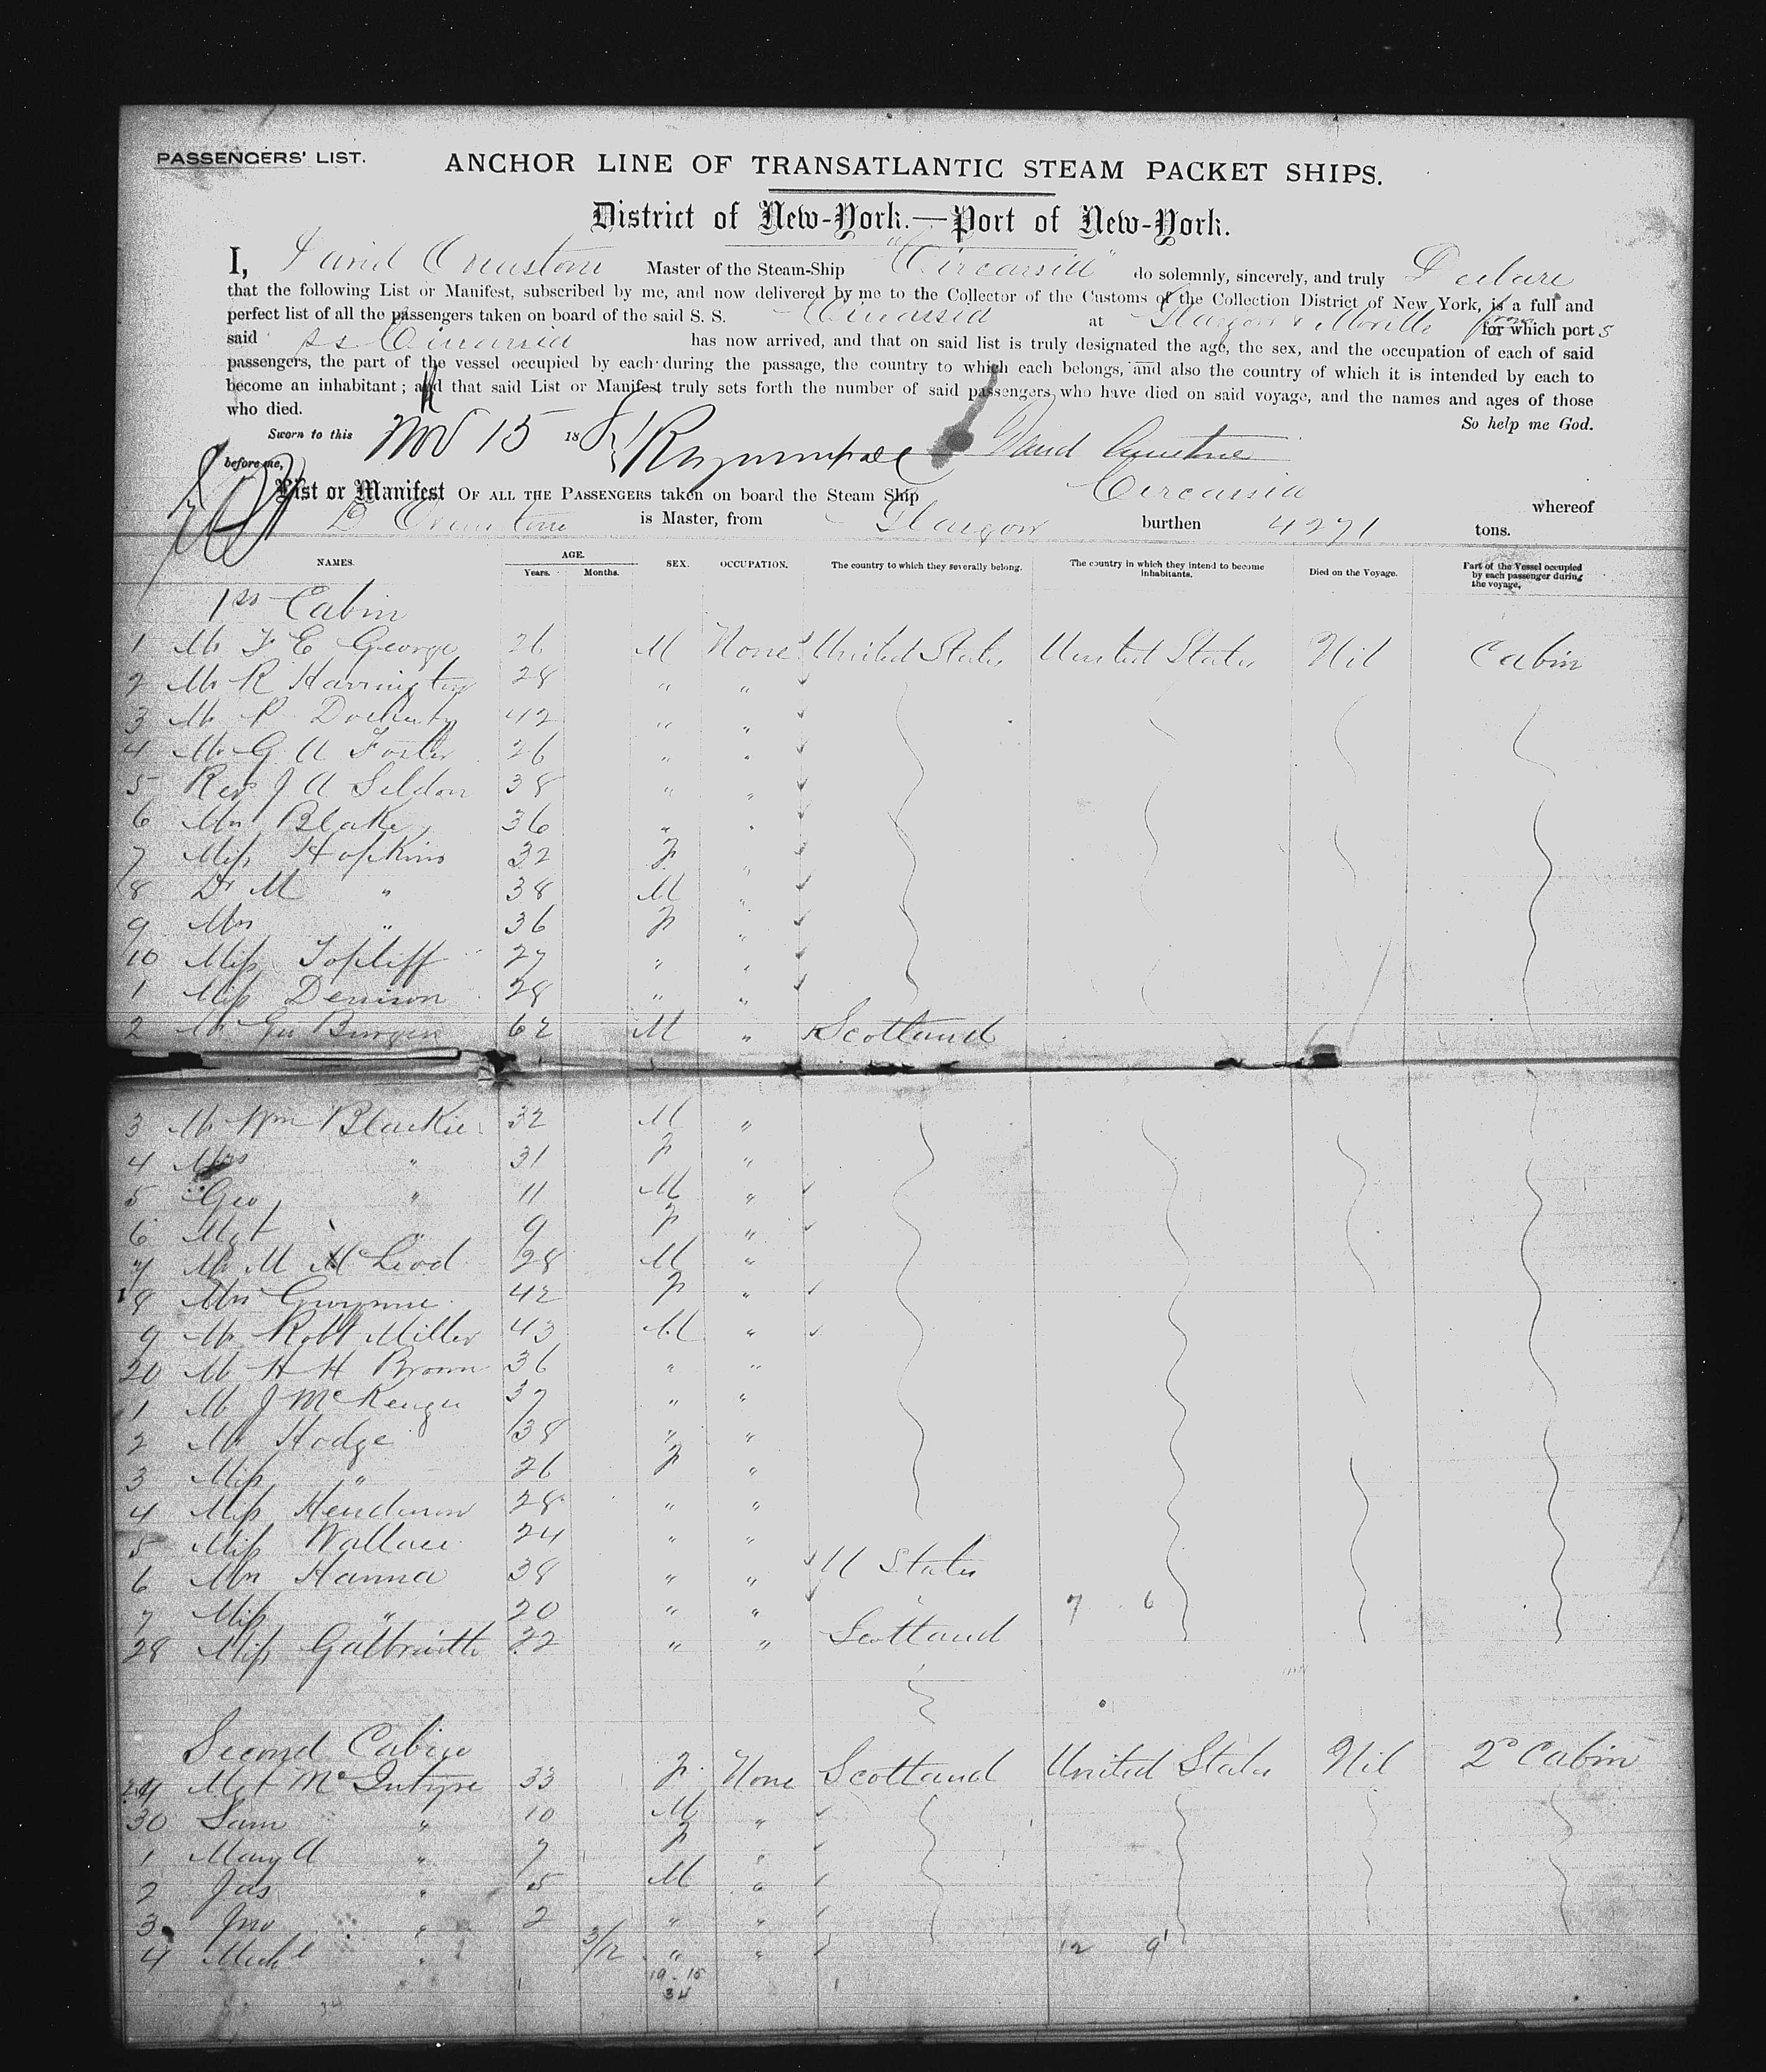 PASSENGERS' LIST.
ANCHOR LINE OF TRANSATLANTIC STEAM PACKET SHIPS.
District of New-York.—Port of New-York.
I, David Ovenstone Master of the Steam-Ship "Circassia" do solemnly, sincerely, and truly Declare
that the following List or Manifest, subscribed by me, and now delivered by me to the Collector of the Customs of the Collection District of New York, is a full and
perfect list of all the passengers taken on board of the said S. S. Circassia at Glasgow & Moville from for which port s
said ss Circassia has now arrived, and that on said list is truly designated the age, the sex, and the occupation of each of said
passengers, the part of the vessel occupied by each during the passage, the country to which each belongs, and also the country of which it is intended by each to
become an inhabitant; and that said List or Manifest truly sets forth the number of said passengers who have died on said voyage, and the names and ages of those
who died. So help me God.
Sworn to this Nov 15 18 David Ovenstone
before me,
List or Manifest OF ALL THE PASSENGERS taken on board the Steam Ship Circassia whereof
D Ovenstone is Master, from Glasgow burthen 4271 tons.
NAMES. AGE. Years. Months. SEX. OCCUPATION. The country to which they severally belong. The country in which they intend to become inhabitants. Died on the Voyage. Part of the Vessel occupied by each passenger during the voyage.
1st Cabin
1 Mr F E George 26 M None United States United States Nil Cabin
2 Mr R Harrington 28 " "
3 Mr P Docherty 42 " "
4 Mr G A Foster 26 " "
5 Rev J A Seldon 38 " "
6 Mr Blake 36 " "
7 Miss Hopkins 32 F "
8 Dr M " 38 M "
9 Mrs " 36 F "
10 Miss Topliff 27 " "
1 Miss Denison 28 " "
2 Mr Geo 62 M " Scotland
3 Mr Wm Blackie 32 M "
4 Mrs " 31 F "
5 Geo " 11 M "
6 Mgt " 9 F "
7 Mr M McLeod 28 M "
8 Mrs Gwynne 42 F "
9 Mr Robt Miller 43 M "
20 Mr H H Brown 36 " "
1 Mr J McKenzie 37 " "
2 Mr Hodge 38 " "
3 Miss " 26 F "
4 Miss Henderson 28 " "
5 Miss Wallace 24 " "
6 Mrs Hanna 38 " " U States
7 Miss " 20 " " 7 6
28 Miss Galbraith 22 " " Scotland
Second Cabin
29 Mgt McIntyre 33 F None Scotland United States Nil 2d Cabin
30 Sam " 10 M "
1 Mary A " 7 F "
2 Jas " 5 M "
3 Jno " 2 " "
4 Michl " 3/12 " " 12 9
19 - 15
34